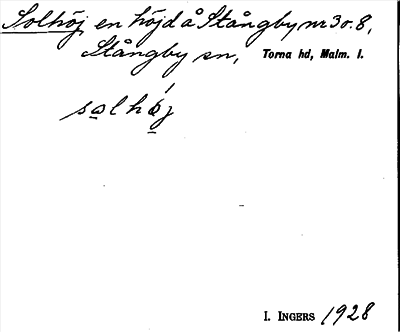 Solhöj, en höjd å Stångby nr 3 o. 8,
Stångby sn, Torna hd, Malm. l.
solhöj
I. INGERS 1928